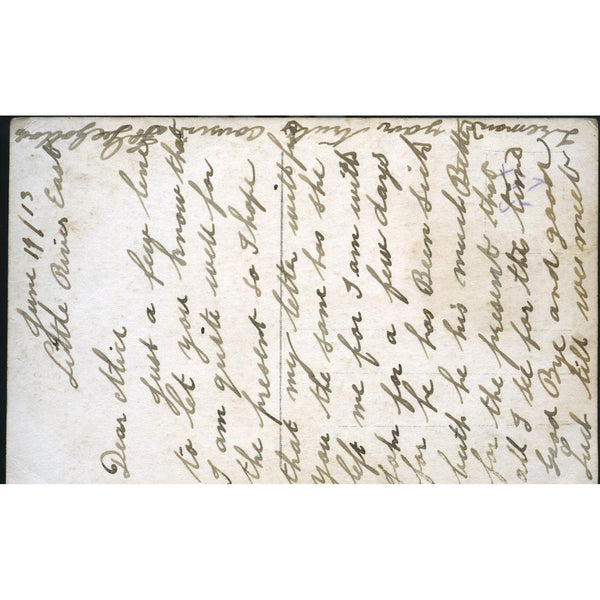 June 19/13
Little River East
Dear Alice
Just a few lines
to let you know that
I am quite well for
the present so I hope
that my letter will find
you the same has she
left me for I am with
John for a few days
for he has Been sick
buth he his much Better
for the present that
all I se for the time
Good Bye and good
Luck till wee meet
I remain your
cousin